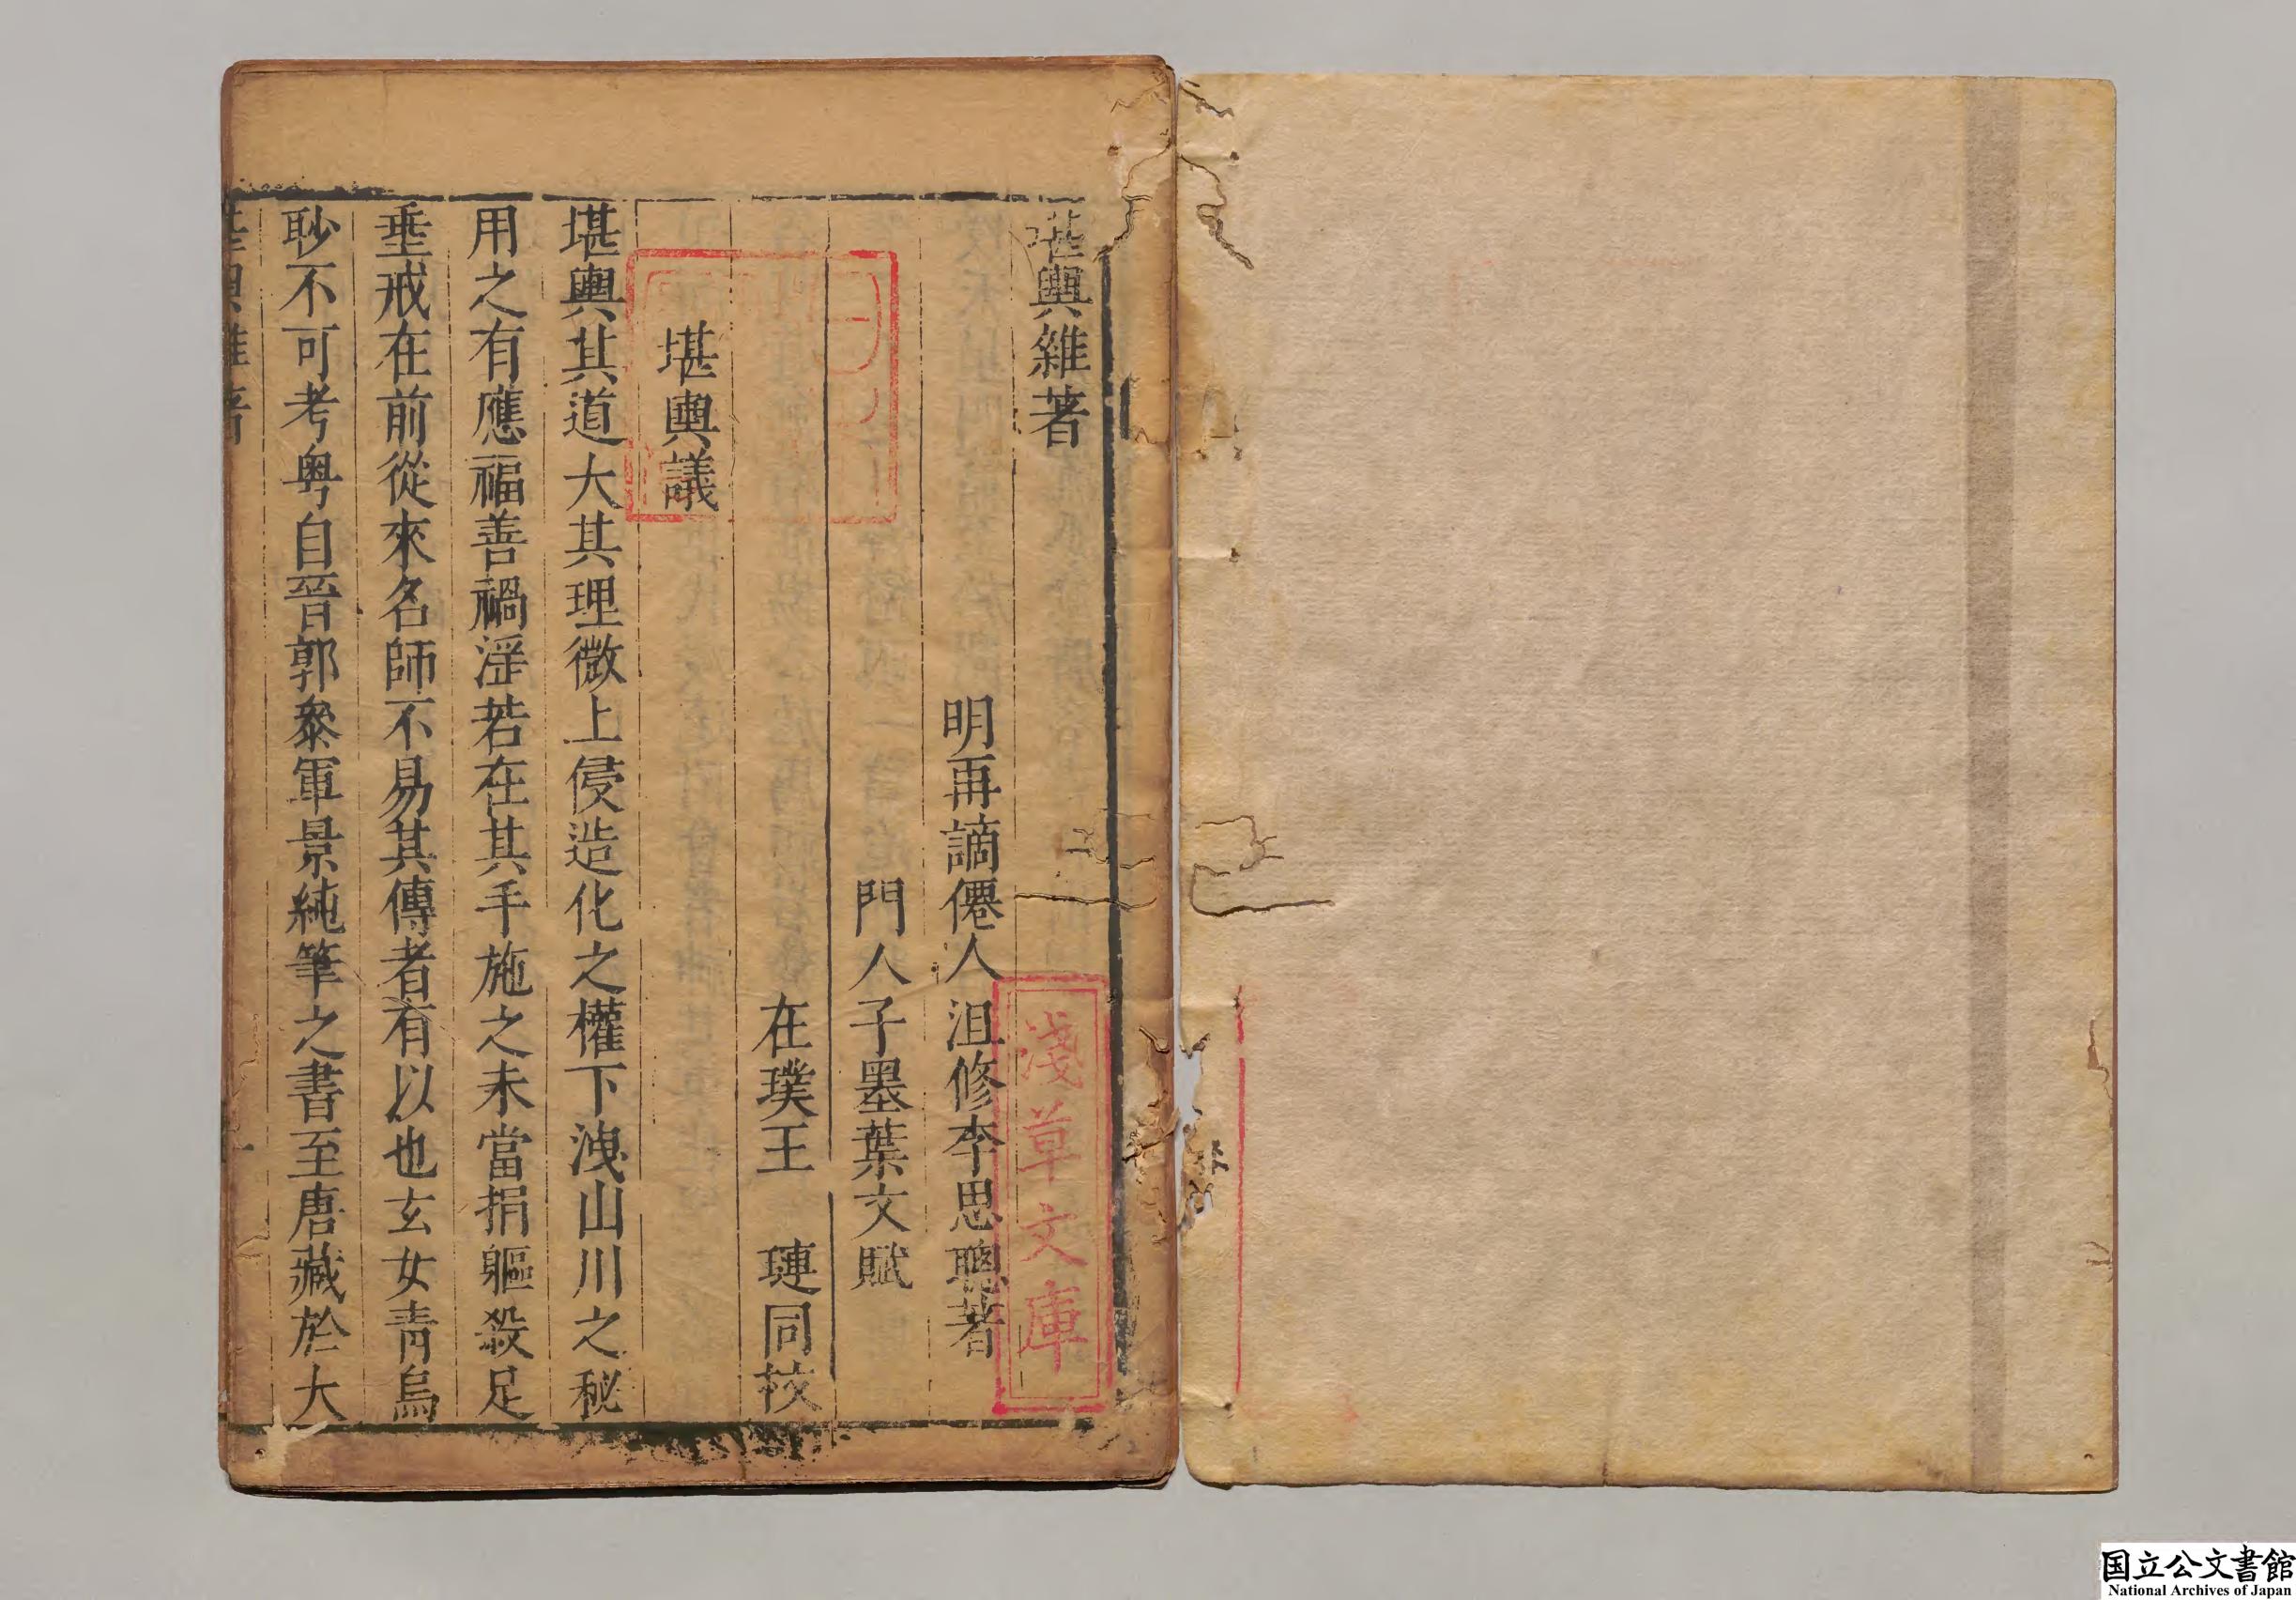 堪輿雜著
明再謫僊人沮修李思聰著
門人子墨葉文賦
在璞王　璉同校
堪輿議
堪輿其道大其理微上侵造化之權下洩山川之秘
用之有應福善禍淫若在其手施之未當捐軀殺足
垂戒在前從來名師不易其傳者有以也玄女青烏
眇不可考粤自晉郭叅軍景純筆之書至唐藏於大
堪輿雜著
淺草文庫
国立公文書館
National Archives of Japan